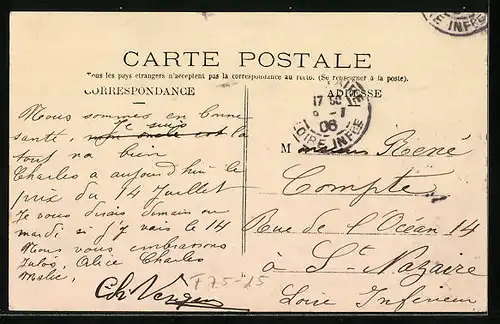 CARTE POSTALE
Tous les pays étrangers n'acceptent pas la correspondance au recto. (Se renseigner à la poste).
CORRESPONDANCE
ADRESSE
17 30
8 - 7
06
LOIRE INFRE
Nous sommes en bonne
santé, Je suis la
tout va bien
Charles a aujourd'hui le
prix du 14 Juillet
Je vous dirais demain ou
mardi si j'y vais le 14
Nous vous embrassons
Jules, Alice Charles
Ch. Vergu
F75-15
M René
Compte
Rue de l'Océan 14
à St Nazaire
Loire Inférieur